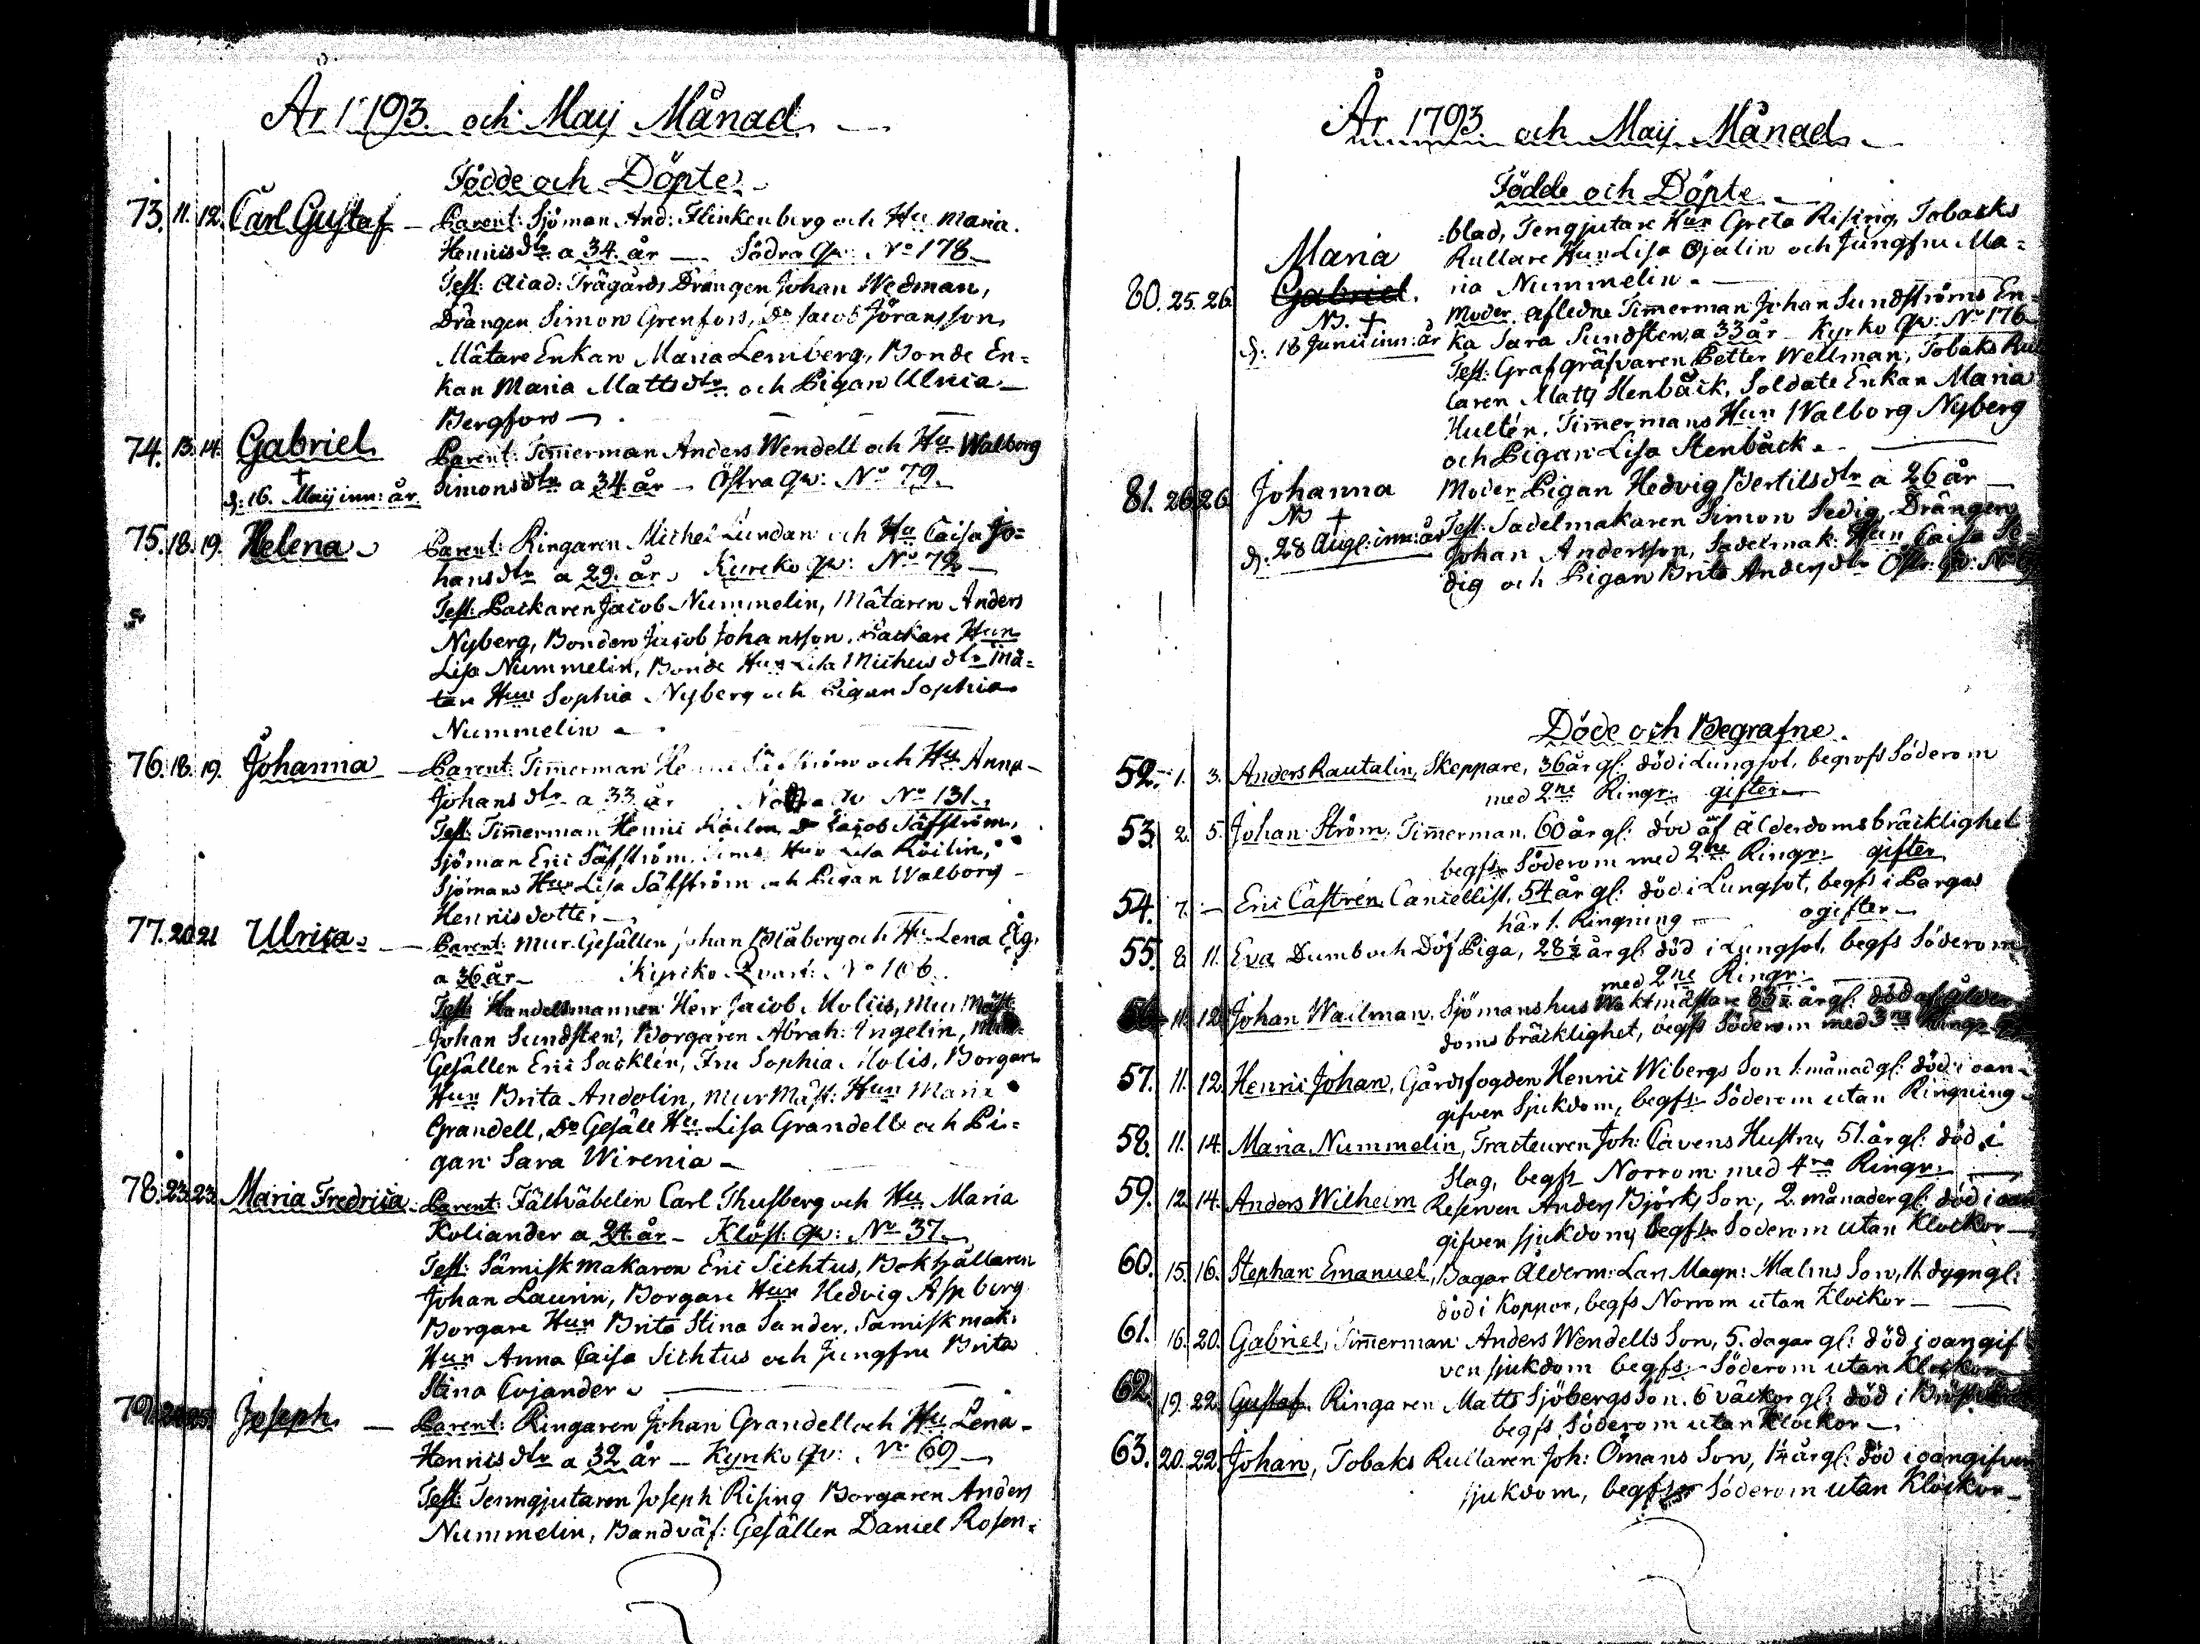 År 1793. och Maij Månad.
Födde och Döpte.
73. 11. 12. Carl Gustaf — Parent: Sjöman And: Flinkenberg och Hu Maria
Henricsdtr a 34. år — Södra Qv: No 178 —
Test: Acad: Trägårds Drängen Johan Wedman,
Drängen Simon Grenfors, Do Jacob Jöransson,
Mätare Enkan Maria Lemberg, Bonde En=
kan Maria Mattsdtr och Pigan Ulrica
Bergfors —
74. 13. 14. Gabriel Parent: Timmerman Anders Wendell och Hu Walborg
† d. 16. Maij inn: år. Simonsdtr a 34. år — Östra Qv: No 79.
75. 18. 19. Helena Parent: Ringaren Michel Lundan och Hu Caisa Jo=
hansdtr a 29. år. Kyrcko Qv: No 79. —
Test: Packaren Jacob Nummelin, Mätaren Anders
Nyberg, Bonden Jacob Johansson, Packare Hun
Lisa Nummelin, Bonde Hun Lisa Michelsdtr Mä=
tare Hun Sophia Nyberg och Pigan Sophia
Nummelin —
76. 18. 19. Johanna — Parent: Timmerman och Hu Anna
Johansdtr a 33 år Norra Qv No 131.
Test: Timmerman Henric Do Jacob Säfström,
Sjöman Eric Säfström, Hun Lisa
Sjömans Hun Lisa Säfström och Pigan Walborg
Henricsdotter —
77. 20 21 Ulrica — Parent: Mur-Gesällen Johan Blåberg och Hu Lena Elg.
a 36 år — Kyrcko Qvart: No 106.
Test: Handelsmannen Herr Jacob Molis, Mur Mäst.
Johan Sundsten, Borgaren Abrah: Engelin, Mur=
Gesällen Eric Sacklén, Fru Sophia Molis, Borgare
Hun Brita Andolin, Mur Mäst: Hun Maria
Grandell, Do Gesäll Hu Lisa Grandell och Pi=
gan Sara Wirenia —
78. 23. 23. Maria Fredrica Parent: Fältväbelen Carl Thusberg och Hu Maria
Koliander a 24. år — Klost: Qv: No 37.
Test: Sämiskmakaren Eric Sichtus, Bokhållaren
Johan Laurin, Borgare Hun Hedvig Aspberg
Borgare Hun Brita Stina Sander, Sämiskmak:
Hun Anna Caisa Sichtus och Jungfru Brita
Stina Cajander —
79. Joseph — Parent: Ringaren Johan Grandell och Hu Lena
Henricsdtr a 32 år — Kyrko Qv: No 69 —
Test: Tenngjutaren Joseph Rising Borgaren Anders
Nummelin, Bandväf: Gesällen Daniel Rosen=
År 1793. och Maij Månad.
Födde och Döpte.
=blad, Tengjutare Hun Greta Rising, Tobacks
Rullare Hun Lisa Ojalin och Jungfru Ma=
ria Nummelin —
80. 25. 26. Maria Gabriel. Moder. afledne Timmerman Johan Sundströms En=
NB. † d. 18 Junii inn: år ka Sara Sundsten, a 33 år Kyrko Qv: No 176
Test: Grafgräfvaren Petter Wellman, Tobaks Rul
laren Matts Stenbäck, Soldate Enkan Maria
Hultén, Timmermans Hun Walborg Nyberg
och Pigan Lisa Stenbäck.
81. 26 26 Johanna Moder Pigan Hedvig Bertilsdtr a 26 år —
NB † Test: Sadelmakaren Simon Sedig, Drängen
d. 28 Aug: inn: år Johan Andersson, Sadelmak: Hun Caisa Se=
dig och Pigan Brita Andersdtr Östr: Qv: No
Döde och Begrafne.
52. 1. 3. Anders Rautalin, Skeppare, 36 år gl: död i Lungsot, begrofs Söderom
med 2ne Ringr: gifter —
53. 2. 5. Johan Ström, Timmerman, 60 år gl: död af ålderdomsbräcklighet
begfs Söderom med 2ne Ringr: gifter
54. 7. — Eric Castrén, Cancellist, 54 år gl: död i Lungsot, begfs i Pargas
här 1. Ringning — ogifter —
55. 8. 11. Eva Dumb och Döf Piga, 28½ år gl: död i Lungsot, begfs Söderom
med 2ne Ringr:
11. 12. Johan Wailman, Sjömanshus Waktmästare 83½ år gl: död af ålder
domsbräcklighet, begfs Söderom med 3ne Ringr
57. 11. 12. Henric Johan, Gårdsfogden Henric Wibergs Son 1. månad gl: död i oan=
gifven Sjukdom, begfs Söderom utan Ringning
58. 11. 14. Maria Nummelin, Tracteuren Joh: Cavens Hustru, 51. år gl: död i
Slag, begfs Norrom med 4ra Ringr:
59. 12. 14. Anders Wilhelm Reserven Anders Björks Son, 2. månader gl: död i oan
gifven sjukdom, begfs Söderom utan Klockor —
60. 15. 16. Stephan Emanuel, Bagar Ålderm: Lars Magn: Malms Son, 11. dygn gl:
död i Koppor, begfs Norrom utan Klockor —
61. 16. 20. Gabriel, Timmerman Anders Wendells Son, 5. dagar gl: död i oangif
ven sjukdom begfs: Söderom utan Klockor
62. 19. 22. Gustaf, Ringaren Matts Sjöbergs Son. 6 väckor gl: död i
begfs Söderom utan Klockor —
63. 20. 22. Johan, Tobaks Rullaren Joh: Ömans Son, 1¼ år gl: död i oangifven
sjukdom, begfs Söderom utan Klockor —